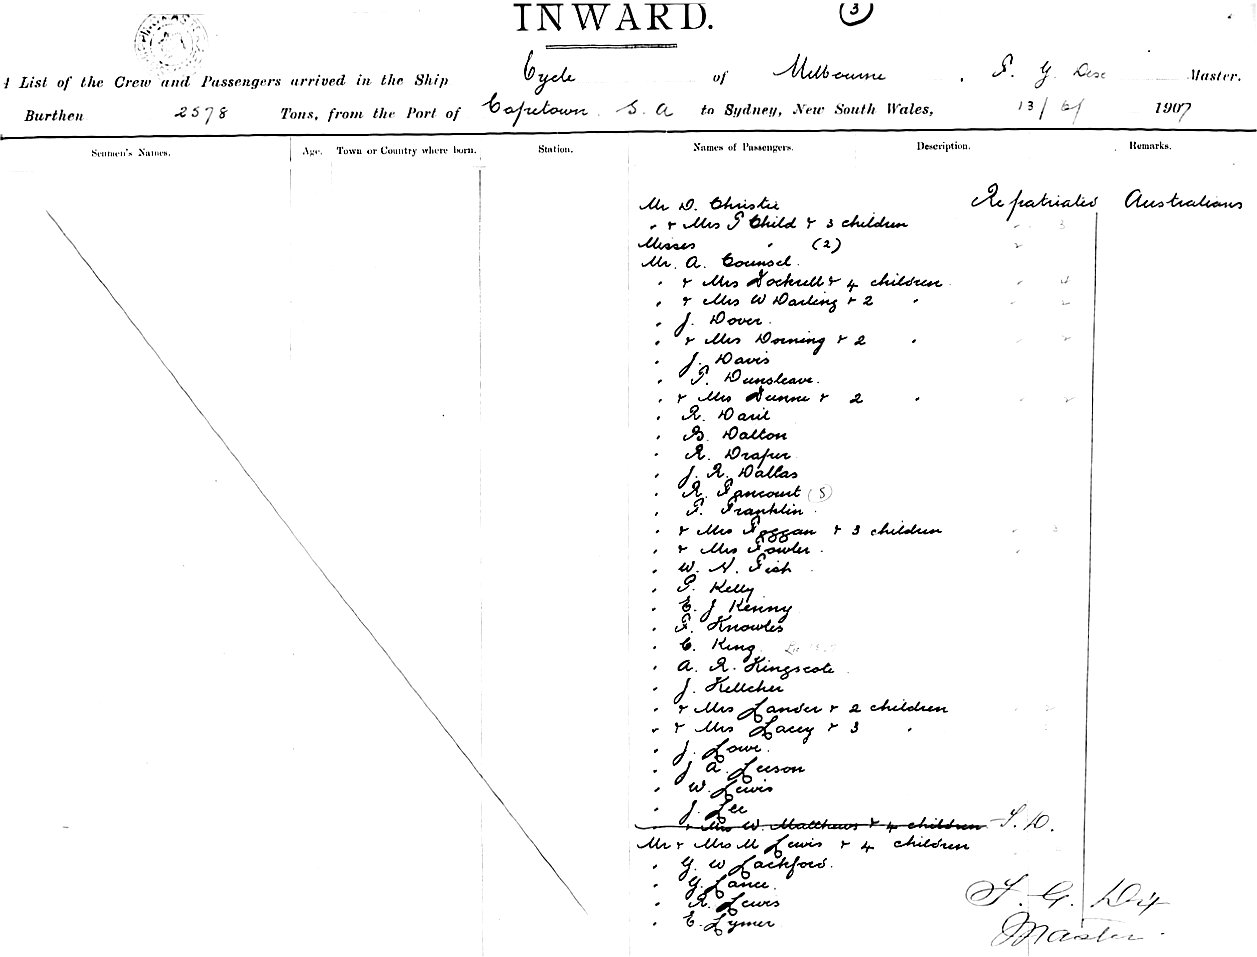 INWARD. 3
A List of the Crew and Passengers arrived in the Ship Cycle of Melbourne, Master.
Burthen 2578 Tons, from the Port of Capetown S. A to Sydney, New South Wales, 13/6/ 1907
Seamen's Names. Age. Town or Country where born. Station. Names of Passengers. Description. Remarks.
Mr D. Christie Repatriated Australians
" & Mrs Child & 3 children 3
Misses " (2)
Mr. A. Counsel.
" & Mrs Dockrell & 4 children 4
" & Mrs W Darling & 2 "
" J. Dover.
" & Mrs Dorning & 2 "
" J. Davis
" Dunsleave.
" & Mrs Dunne & 2 "
" R. Daril
" G. Dalton
" R. Draper
" J. R. Dallas
" R. Fancourt (S)
" F. Franklin
" & Mrs Foggan & 3 children 3
" & Mrs Fowler.
" W. N. Fish
" P. Kelly
" E. J Kenny
" F. Knowles
" C. King
" A. R. Kingscote
" J. Kelleher
" & Mrs Lander & 2 children
" & Mrs Lacey & 3 "
" J. Lowe.
" J A. Leeson
" W. Lewis
" J. Lee
" Mrs W. Matthews & 4 children
Mr & Mrs M Lewis & 4 children
" G. W Lackford.
" G. Lance.
" R. Lewis
" E. Lymer
T. G. Dix
Master.